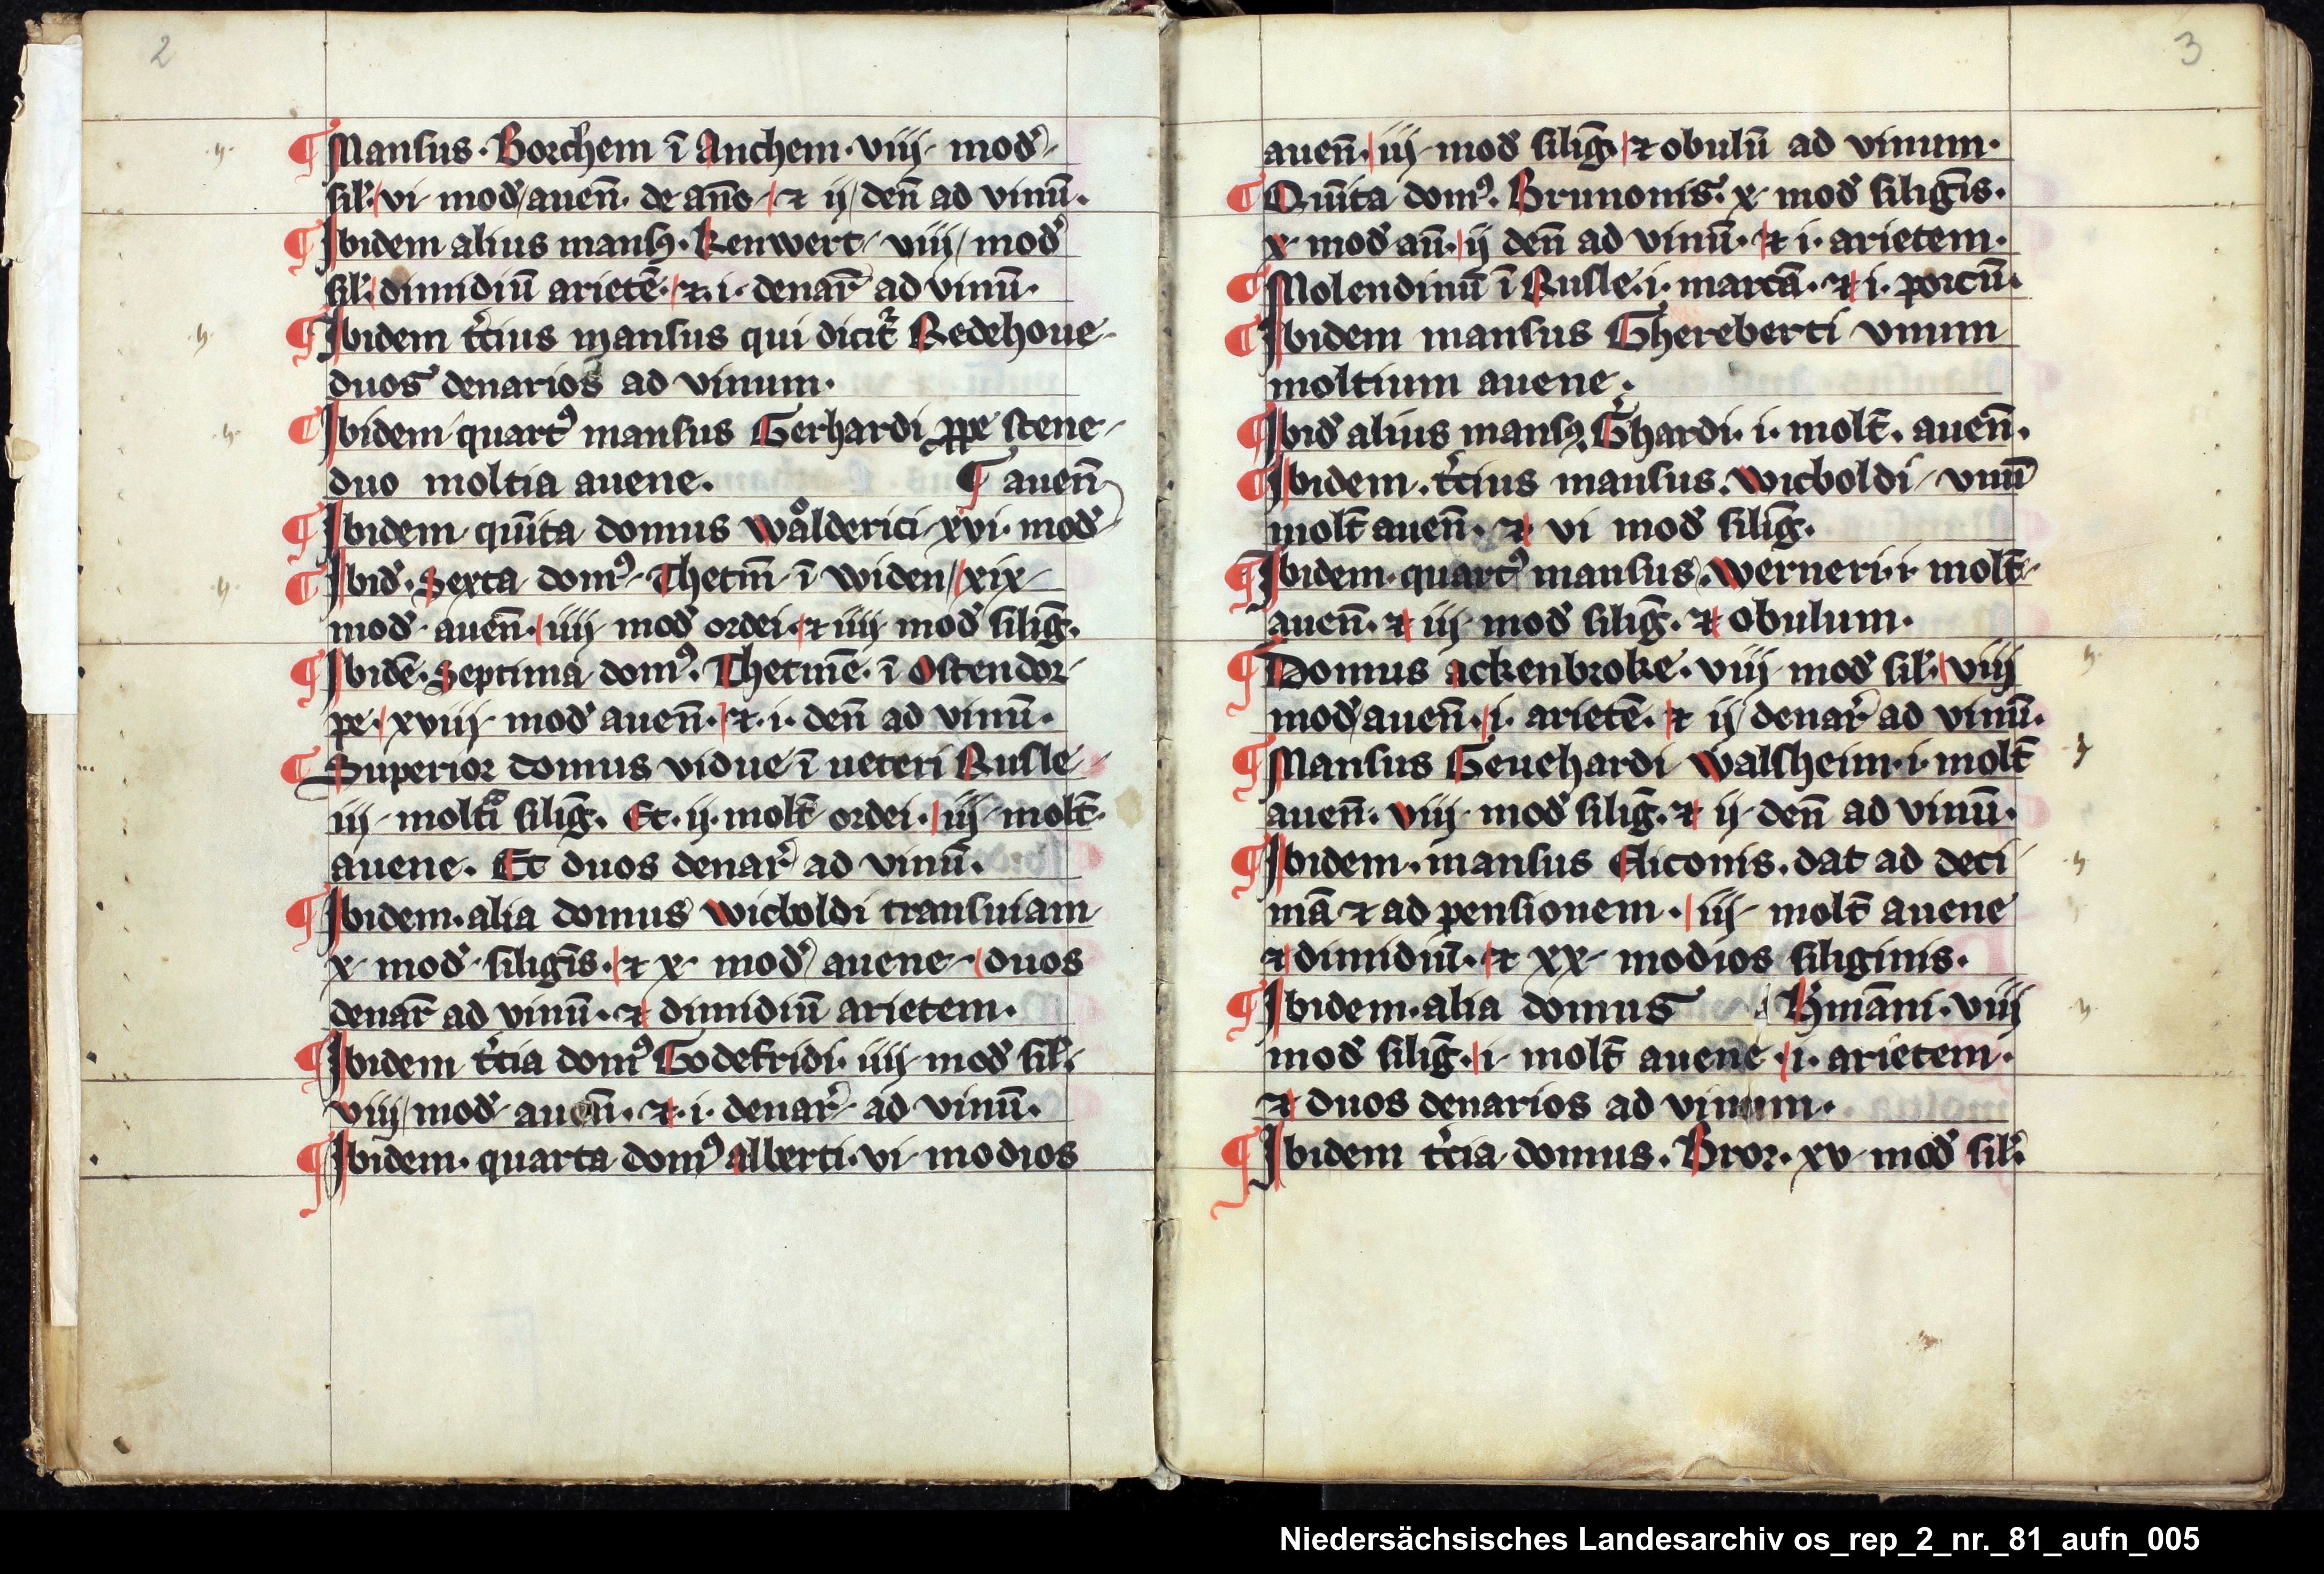 2
¶ Mansus · Borchem ī Anchem · viij · mod̄
sil̄ · vi · mod̄ auen̄ · de an̄o · ⁊ ij den̄ ad vinū ·
¶ Ibidem alius mansꝯ · Renwert · viij mod̄
sil̄ · dimidiū arietē · ⁊ · i · denar̄ ad vinū ·
¶ Ibidem t̄cius mansus qui dicit᷑ Redehoue
duos denarios ad vinum ·
¶ Ibidem quartꝰ mansus Gerhardi ꝓpe stene
duo moltia auene · ¶ auen̄
¶ Ibidem quīta domus Wålderici xvi · mod̄
¶ Ibid̄ · Sexta domꝰ · Thetm̄ ī widen xix
mod̄ auen̄ · iiij mod̄ ordei · ⁊ iiij mod̄ siliḡ ·
¶ Ibidē · Septima domꝰ · Thetmē · ī Ostendor
pe · xviij mod̄ auen̄ · ⁊ · i · den̄ ad vinū ·
¶ Superior domus vidue ī ueteri Rusle
iij moltꝰ siliḡ · Et · ij · molt̄ ordei · iij molt̄
auene · Et duos denar̄ ad vinū ·
¶ Ibidem · alia domus wicboldi transuiam
x mod̄ siligīs · ⁊ x mod̄ auene · duos
denar̄ ad vinū · ⁊ dimidiū arietem ·
¶ Ibidem t̄cia domꝰ Godefridi · iiij mod̄ sil̄ ·
viij mod̄ auen̄ · ⁊ · i · denar̄ ad vinū ·
¶ Ibidem · quarta domꝰ alberti · vi modios
3
auen̄ · iij mod̄ siliḡ · ⁊ obulū ad vinum ·
¶ Quīta domꝰ · Brunonis · x mod̄ siligīs ·
x mod̄ aū · ij den̄ ad vinū · ⁊ i · arietem ·
¶ Molendinū ī Rusle · i · marcā · ⁊ i · porcū ·
¶ Ibidem mansus Ghereberti vnum
moltium auene ·
¶ Ibid̄ alius mansꝯ · Ghardi · i · molt̄ · auen̄ ·
¶ Ibidem · t̄cius mansus · wicboldi vnū
molt̄ auen̄ · ⁊ vi mod̄ siliḡ ·
¶ Ibidem · quartꝰ mansus · werneri · i · molt̄
auen̄ · ⁊ iij mod̄ siliḡ · ⁊ obulum ·
¶ Domus ackenbroke · viij mod̄ sil̄ · viij
mod̄ auen̄ · i · arietē · ⁊ ij denar̄ ad vinū ·
¶ Mansus Geuehardi Walsheim · i · molt̄
auen̄ · viij mod̄ siliḡ · ⁊ ij den̄ ad vinū ·
¶ Ibidem · mansus Eliconis · dat ad deci
mā ⁊ ad pensionem · iij molt̄ auene
⁊ dimidiū · ⁊ xx modios siliginis ·
¶ Ibidem · alia domus H̄māni · viij
mod̄ siliḡ · i molt̄ auene · i · arietem ·
⁊ duos denarios ad vinum ·
¶ Ibidem t̄cia domus · Bror · xv mod̄ sil̄ ·
Niedersächsisches Landesarchiv os_rep_2_nr._81_aufn_005